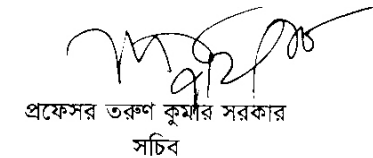 প্রফেসর তরুণ কুমার সরকার
সচিব